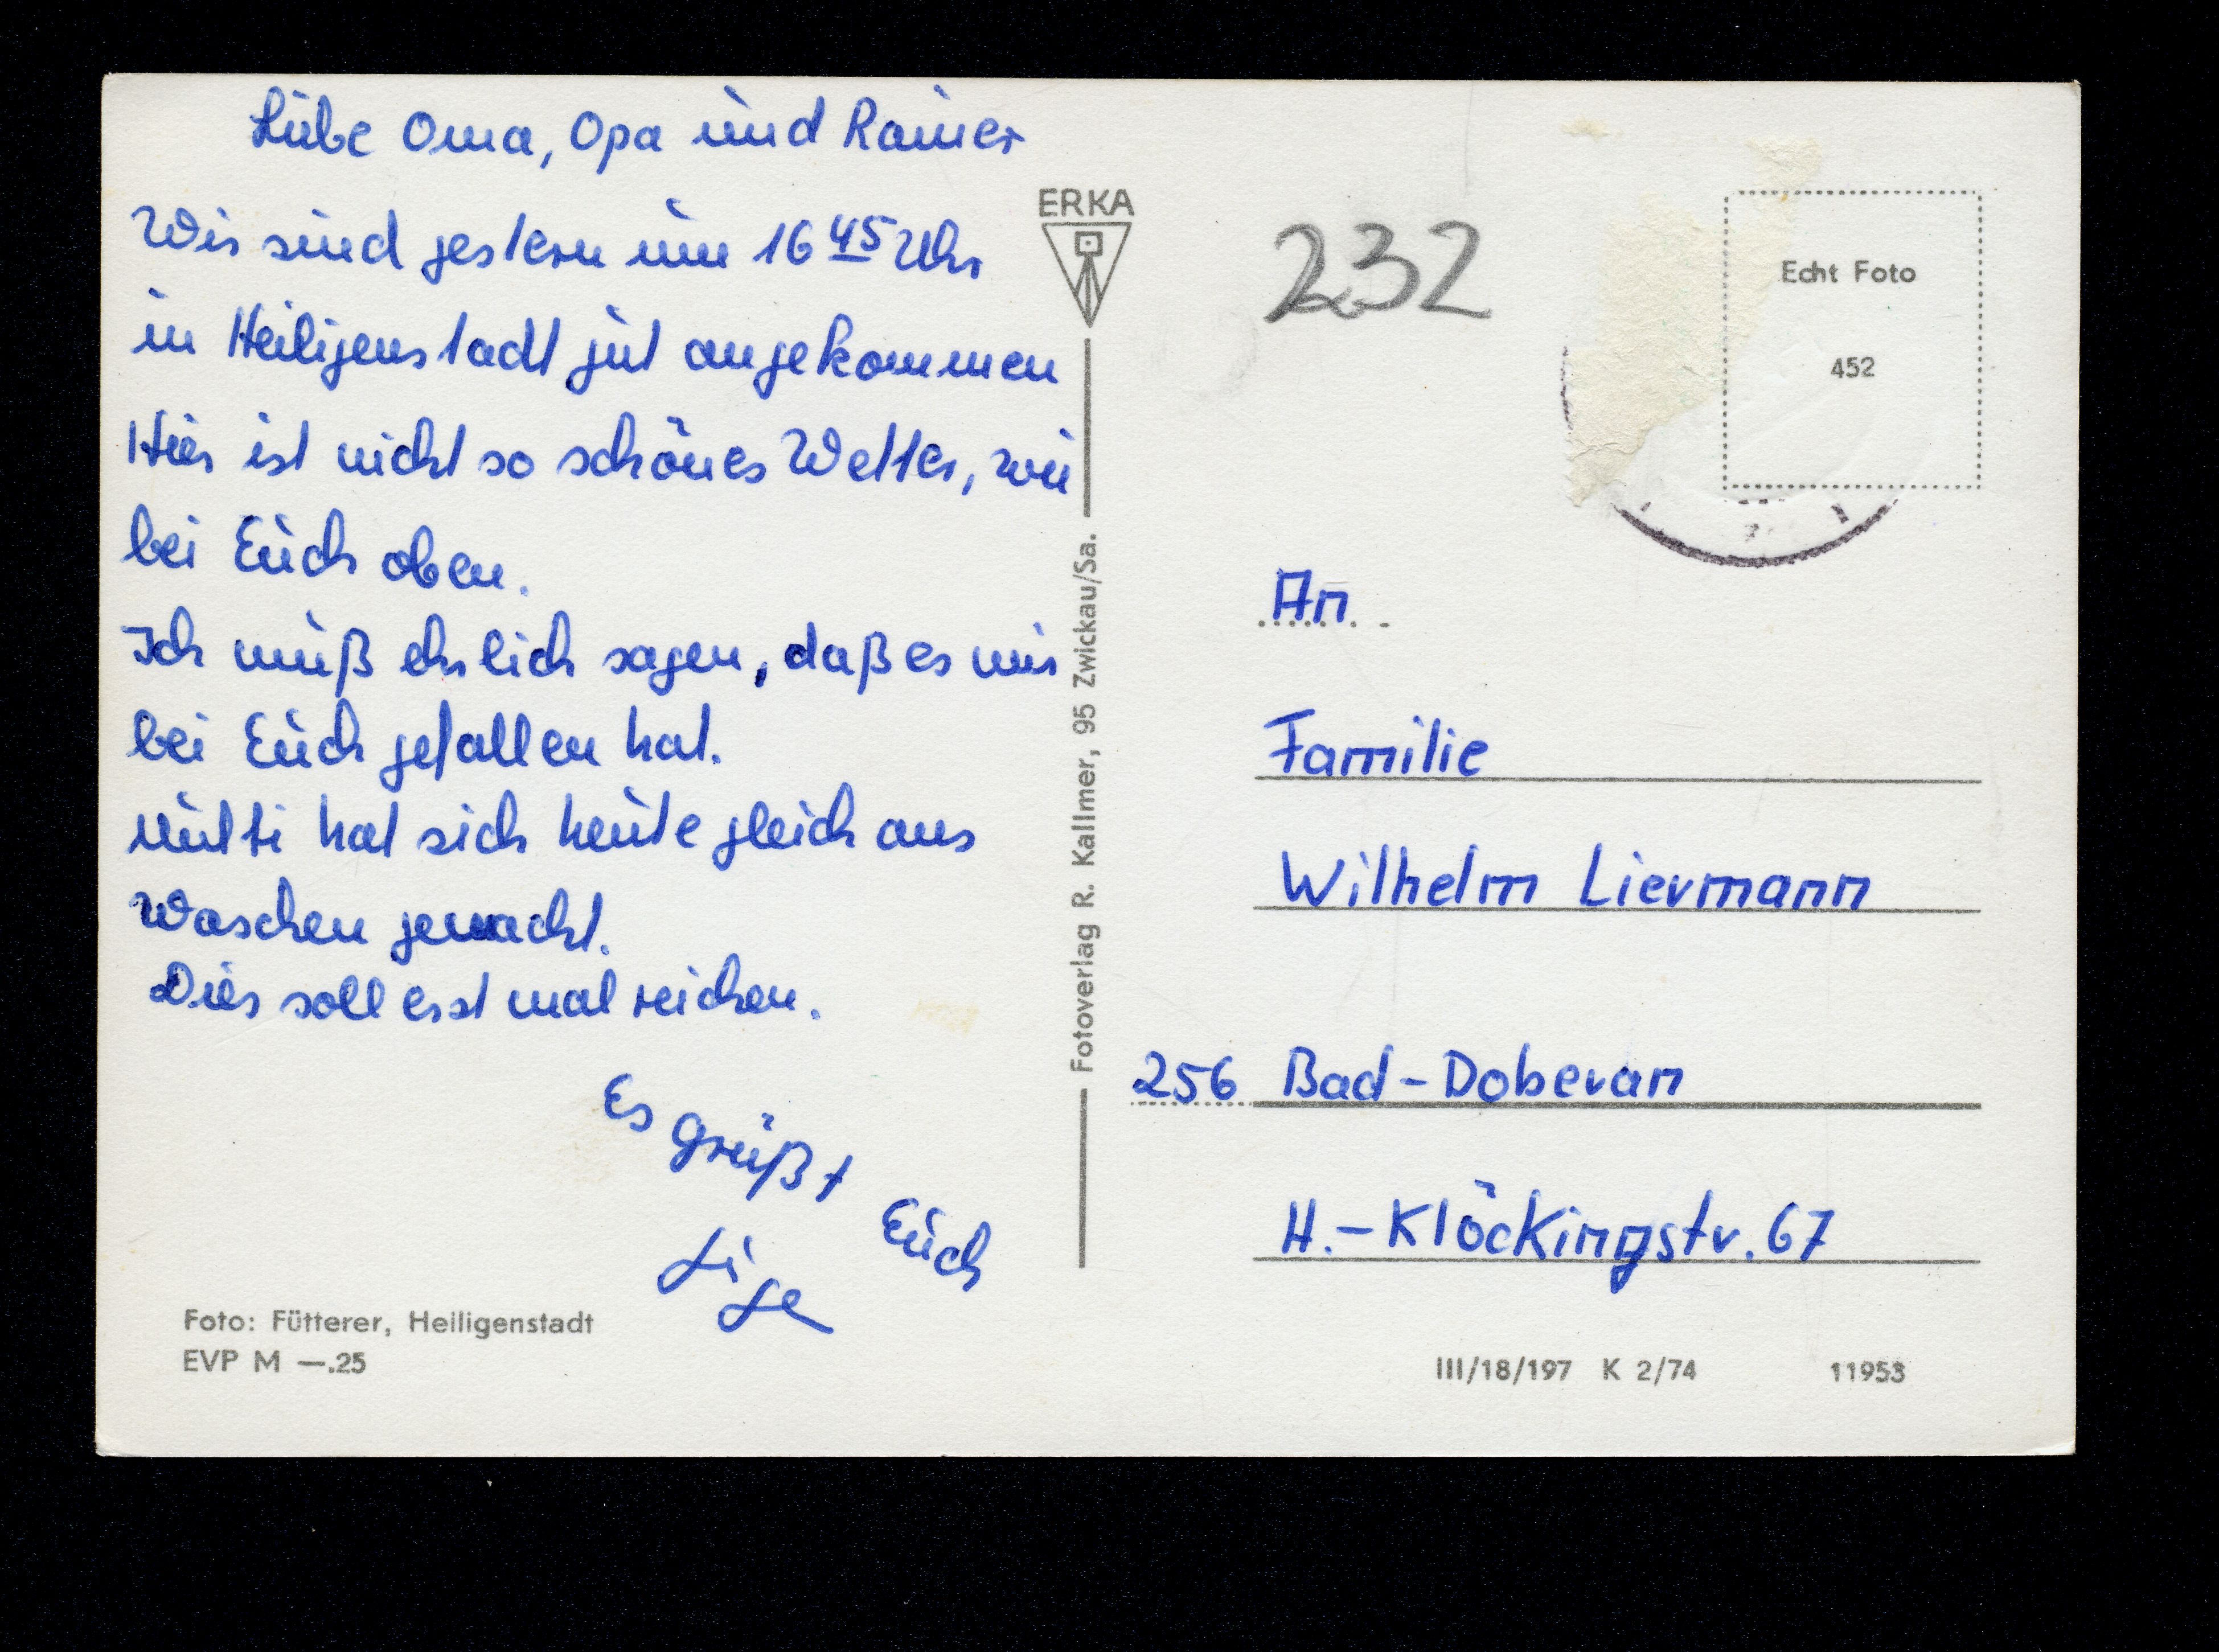 Liebe Oma, Opa und Rainer
Wir sind gestern um 16 45 Uhr
in Heiligenstadt gut angekommen
Hier ist nicht so schönes Wetter, wie
bei Euch oben.
Ich muß ehrlich sagen, daß es mir
bei Euch gefallen hat.
Mutti hat sich heute gleich ans
Waschen gemacht.
Dies soll erst mal reichen.
Es grüßt Euch
Foto: Fütterer, Heiligenstadt
EVP M —.25
ERKA
Fotoverlag R. Kallmer, 95 Zwickau/Sa.
232
Echt Foto
452
An
Familie
Wilhelm Liermann
256 Bad-Doberan
H.-Klöckingstr. 67
III/18/197 K 2/74 11953